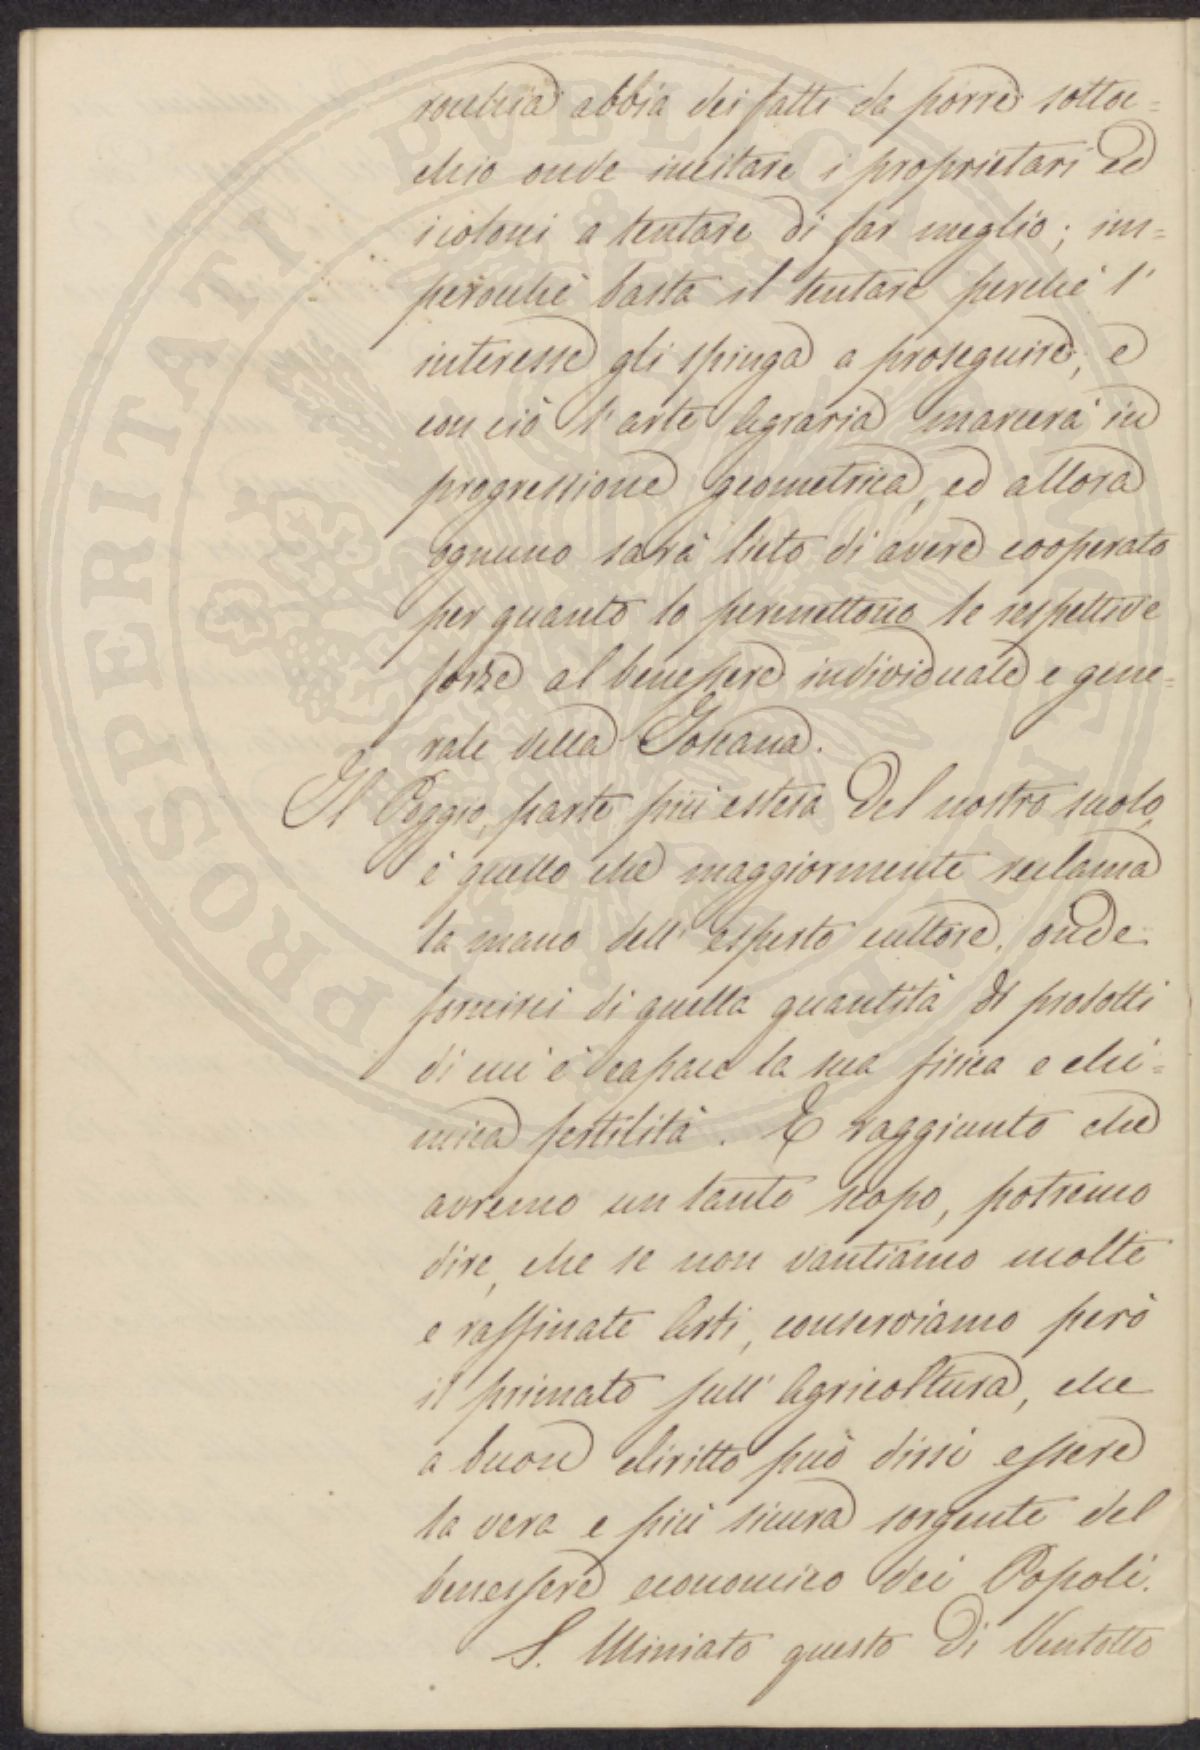 rocchia abbia dei fatti da porre sottoc=
chio onde incitare i proprietari ed
i coloni a tentare di far meglio; im=
perocchè basta il tentare perchè l'
interesse gli spinga a proseguire, e
con ciò l'arte Agraria marcerà in
progressione geometrica, ed allora
ognuno sarà lieto di avere cooperato
per quanto lo permettono le respettive
forze al benessere individuale e gene=
rale della Toscana.
Il Poggio, parte più estesa del nostro suolo,
è quello che maggiormente reclama
la mano dell'esperto cultore, onde
fornirci di quella quantità di prodotti
di cui è capace la sua fisica e chi=
mica fertilità. E raggiunto che
avremo un tanto scopo, potremo
dire, che se non vantiamo molte
e raffinate Arti, conserviamo però
il primato sull'Agricoltura, che
a buon diritto può dirsi essere
la vera e più sicura sorgente del
benessere economico dei Popoli.
S. Miniato questo Dì Ventotto
PROSPERITATI PUBLICAE